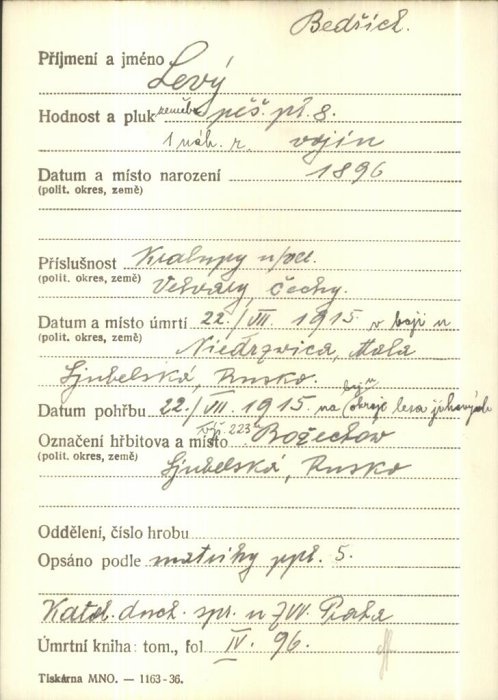 Bedřich.
Příjmení a jméno Levý
Hodnost a pluk zeměbr. pěš. pl. 8.
1 náh. r. vojín
Datum a místo narození 1896
(polit. okres, země)
Příslušnost Kralupy n/Vl.
(polit. okres, země) Velvary, Čechy.
Datum a místo úmrtí 22./VII. 1915. v boji u
(polit. okres, země) Niedrzwica, Mala
Ljubelská, Rusko.
Datum pohřbu 22./VII. 1915 na okraji lesa jihových.
Označení hřbitova a místo 223 Božechov
(polit. okres, země)
Ljubelská, Rusko
Oddělení, číslo hrobu
Opsáno podle matriky ppl. 5.
Katol. duch. spr. u ZVV. Praha
Úmrtní kniha: tom., fol IV. 96.
Tiskárna MNO. — 1163-36.